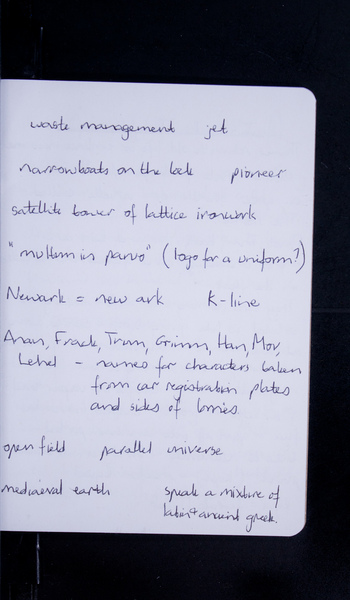 waste management jet
narrowboats on the lock pioneer
satellite tower of lattice ironwork
"multum in parvo" (logo for a uniform?)
Newark = new ark K-line
Anan, Frack, Trum, Grimm, Han, Mov,
Lehel - names for characters taken
from car registration plates
and sides of lorries.
open field parallel universe
mediaeval earth speak a mixture of
latin + ancient greek.